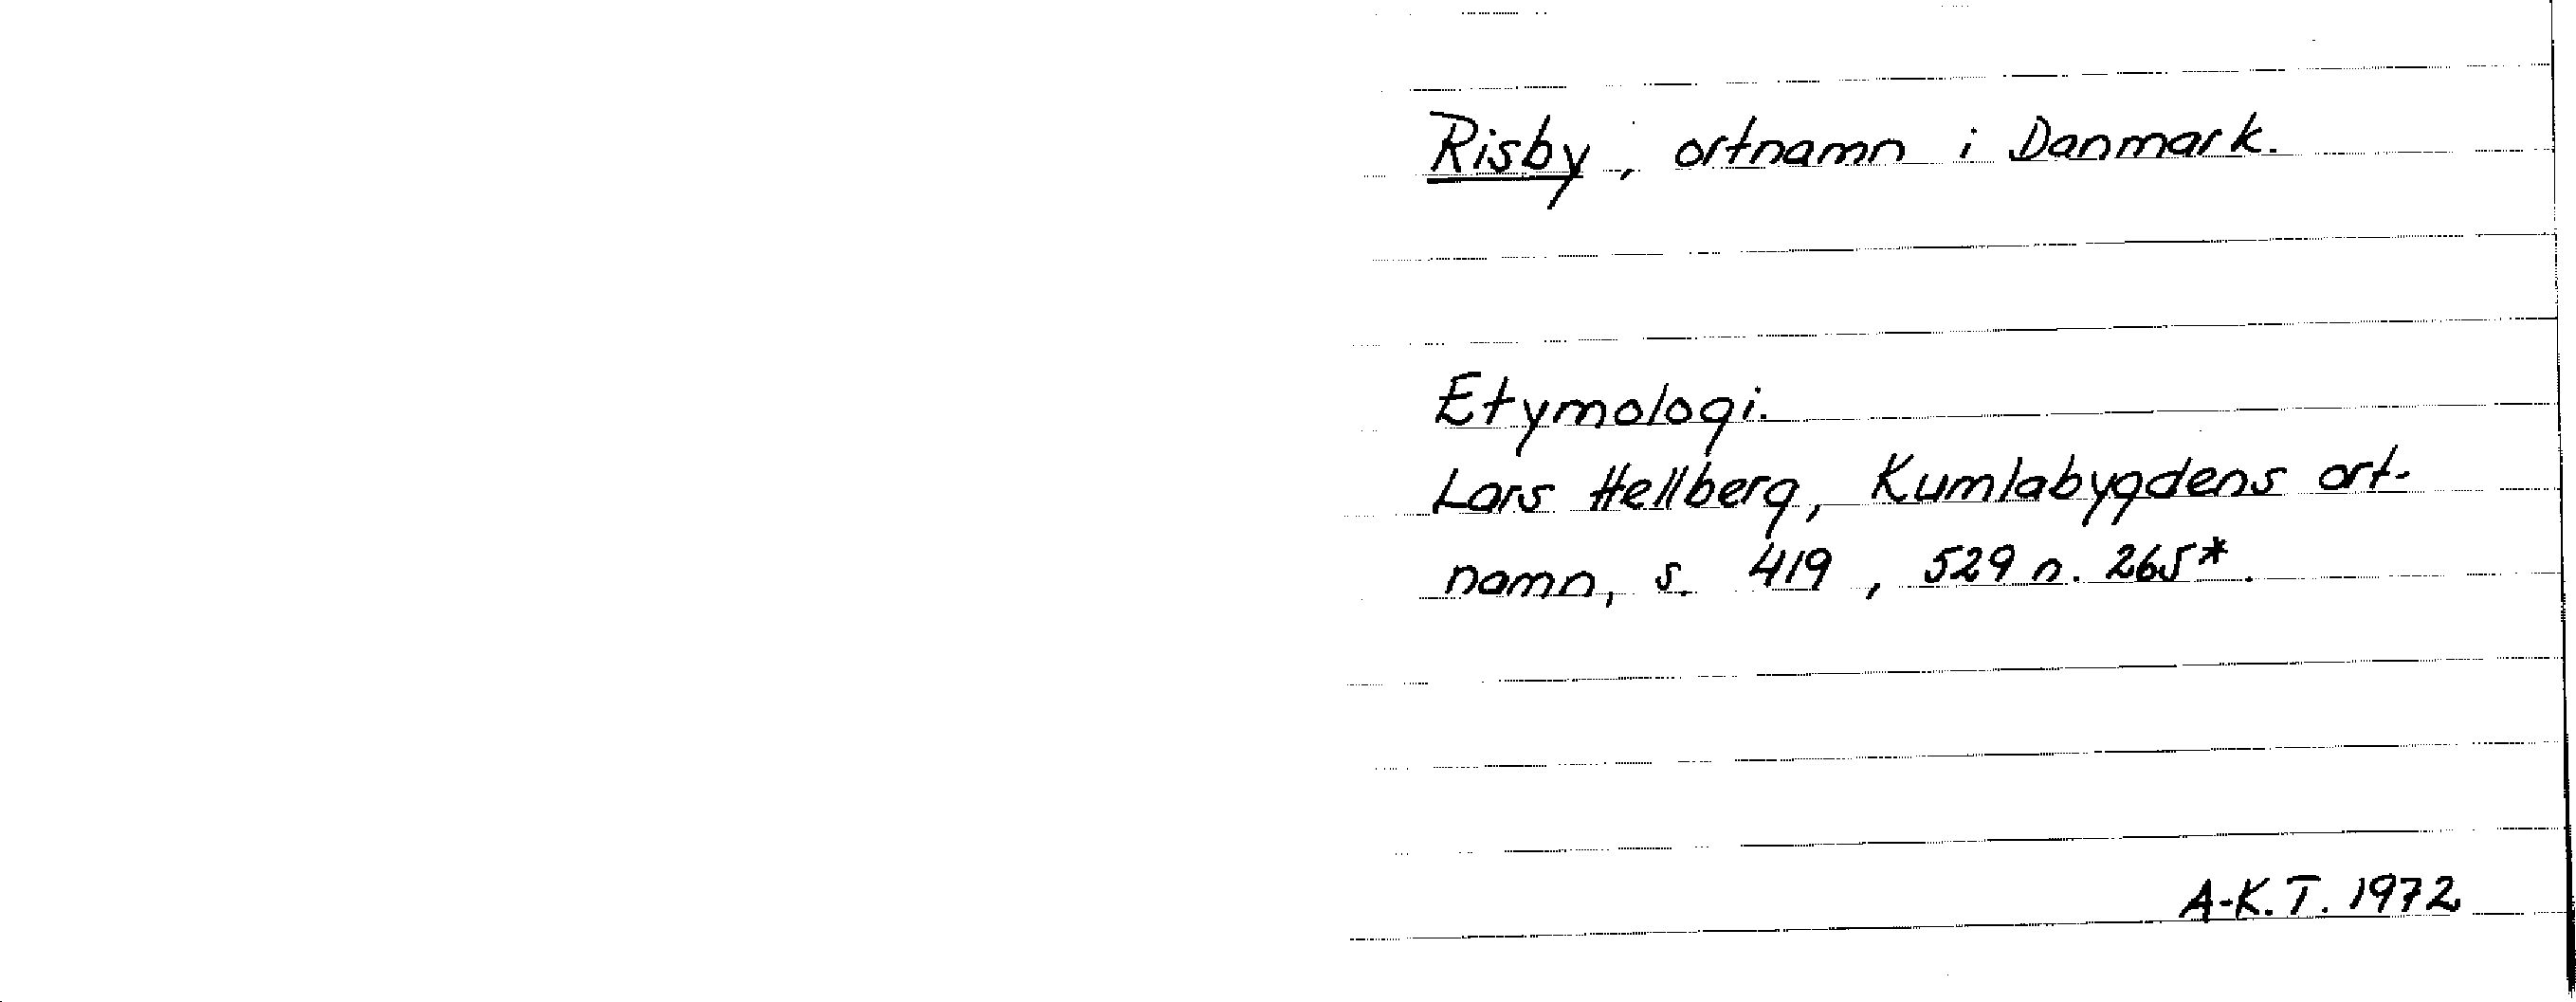 Risby, ortnamn i Danmark.
Etymologi.
Lars Hellberg, Kumlabygdens ort-
namn, s. 419, 529 n. 265*.
A-K.T. 1972